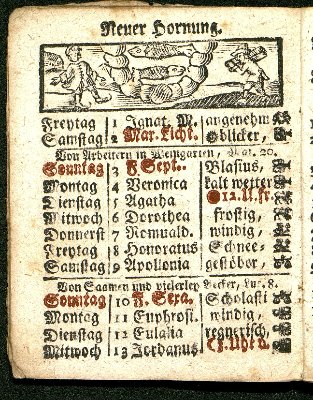 Neuer Hornung.
Freytag 1 Ignat. M. angenehm
Samstag 2 Mar. Licht. Oblicker,
Von Arbeitern in Weingarten, Mat. 20.
Sonntag 3 F Sept. Blasius,
Montag 4 Veronica kalt wetter
Dienstag 5 Agatha 12.U.fr.
Mitwoch 6 Dorothea frostig,
Donnerst 7 Romuald. windig,
Freytag 8 Honoratus Schnee-
Samstag 9 Apollonia gestöber,
Von Saamen und vielerley Aecker, Luc. 8.
Sonntag 10 F. Sexa. Scholasti
Montag 11 Euphrosi. windig,
Dienstag 12 Eulalia regnerisch,
Mitwoch 13 Jordanus